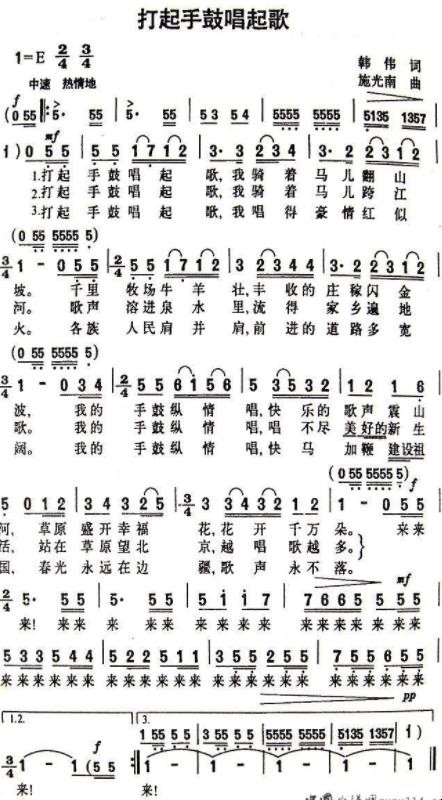 打起手鼓唱起歌
1=E 2/4 3/4
韩 伟 词
中速 热情地
施光南 曲
f
(0 55 5· 5· 5· 55 53 54 5555 5555 5135 1357
mf
1) 0 5 5 5 5 1 7 1 2 3· 3 2 3 4 3· 2 2 3 1 2
1.打起 手鼓唱 起 歌,我骑着马儿翻山
2.打起 手鼓唱 起 歌,我骑着马儿跨江
3.打起 手鼓唱 起 歌,我唱得豪情红似
(0 55 5555 5)
3/4 1 - 0 5 5 2/4 5 5 1 7 1 2 3 2 3 4 4 2 2 3 1 2
坡。 千里 牧场牛 羊 壮,丰收的庄稼闪金
河。 歌声 溶进泉 水 里,流得家乡遍地
火。 各族 人民肩 并 肩,前进的道路多宽
(0 55 5555 5)
3/4 1 - 0 3 4 2/4 5 5 6 1 5 6 5 3 5 3 2 1 2 1 6
波, 我的 手鼓纵 情 唱,快乐的 歌声震山
歌。 我的 手鼓纵 情 唱,唱不尽 美好的新生
阔。 我的 手鼓纵 情 唱,快马 加鞭 建设祖
(0 55 5555 5) f
5 0 1 2 3 4 3 2 1 2 3/4 3 3 4 3 2 1 2 1 - 0 5 5
河, 草原 盛开幸福 花,花开千万朵。 来来
活, 站在 草原望北 京,越唱歌越多。
国, 春光 永远在边 疆,歌声永不落。
mf
2/4 5· 5 5 5· 5 5 5 1 1 7 7 6 6 5 5 0 5 5 5
来! 来来 来! 来来 来来来来 来来来来来 来来来
5 3 3 3 5 4 4 5 2 2 2 5 5 1 3 5 5 2 5 5 7 5 5 5 6 5 5
来来来来来来来 来来来来来来 来来来来来来 来来来来来来
pp
1.2. 3.
f
1 - 1 (5 5 1 55 5 55 5 5 5555 5555 5135 1357 1)
1 - 1 - 1 - 1 -
来! 来!